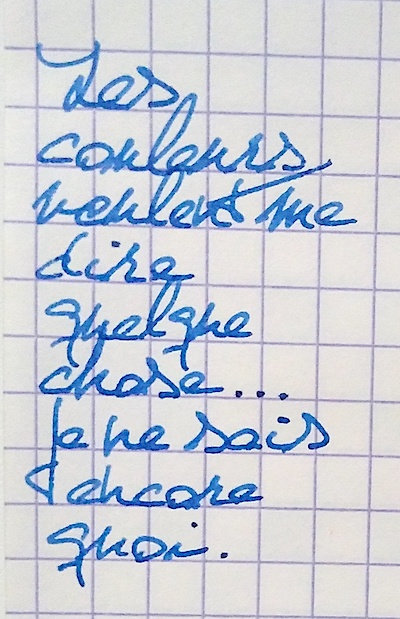 Les
couleurs
veulent me
dire
quelque
chose...
Je ne sais
encore
quoi.